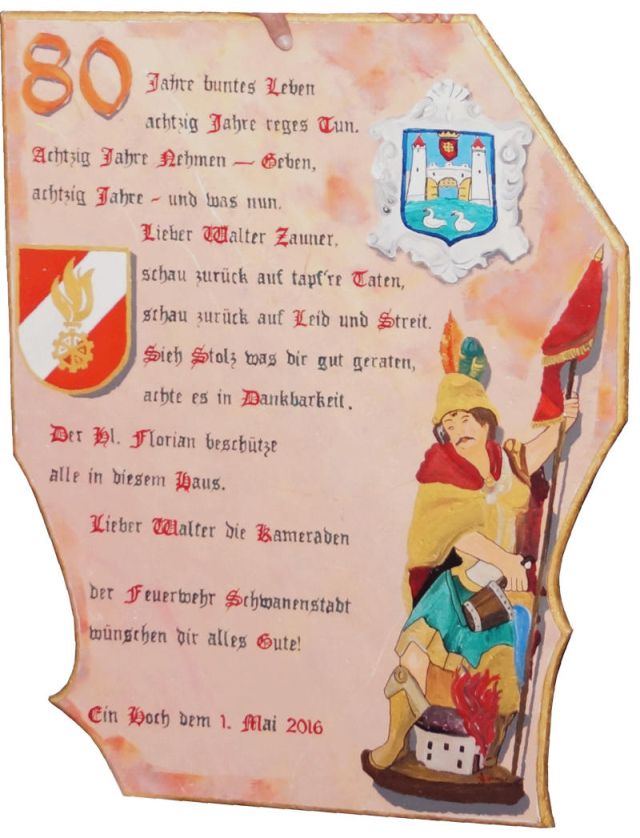 80 Jahre buntes Leben
achtzig Jahre reges Tun.
Achtzig Jahre Nehmen – Geben,
achtzig Jahre - und was nun.
Lieber Walter Zauner,
schau zurück auf tapf're Taten,
schau zurück auf Leid und Streit.
Sieh Stolz was dir gut geraten,
achte es in Dankbarkeit.
Der Hl. Florian beschütze
alle in diesem Haus.
Lieber Walter die Kameraden
der Feuerwehr Schwanenstadt
wünschen dir alles Gute!
Ein Hoch dem 1. Mai 2016